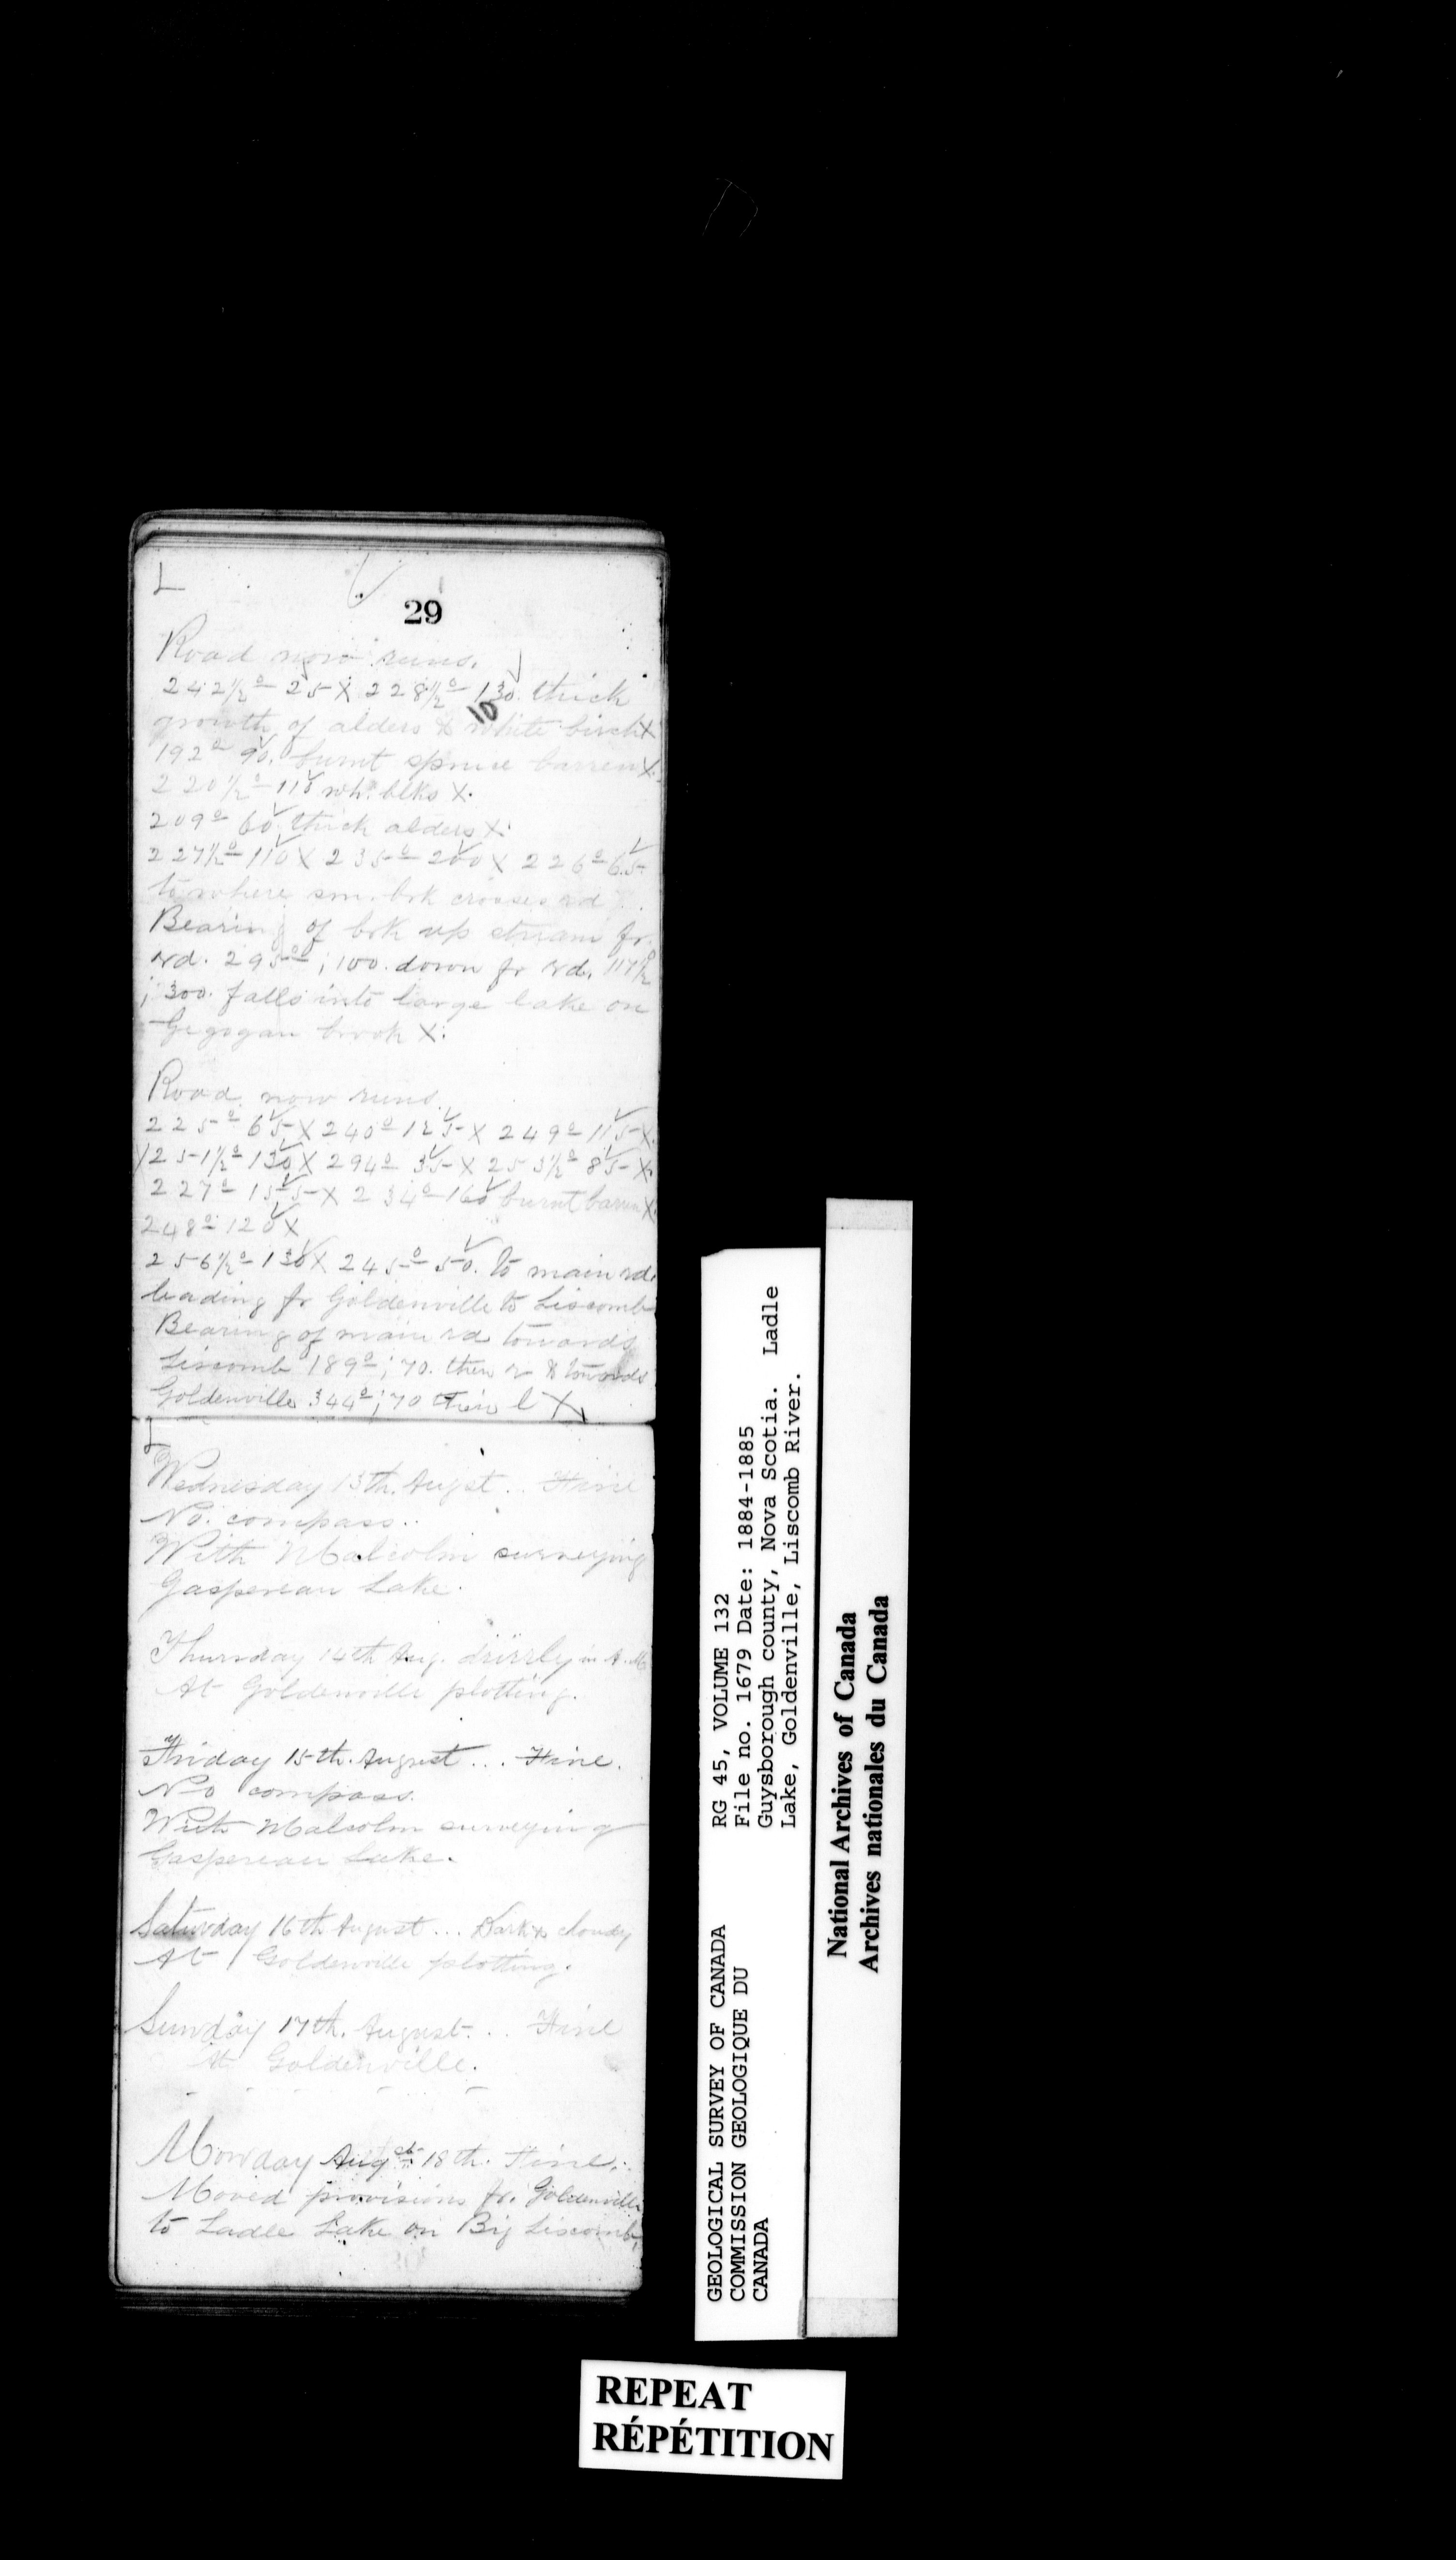 L
29
Road now runs.
242½° 25 X 228½° 130. thick
10
growth of alders & white birch X
192° 90. burnt spruce barren X.
220½° 110 wh. blks X.
209° 60 thick alders X.
227½° 110 X 235° 200 X 226° 65.
to where sm. brk crosses rd
Bearing of brk up stream fr.
rd. 295°; 100. down fr rd. 117½°
; 300. falls into large lake on
Gegogan brook X.
Road now runs
225° 65 X 240° 125 X 249° 115 X.
X 251½° 130 X 294° 35 X 253½° 85 X.
227° 155 X 234° 160 burnt barren X.
248° 120 X
256½° 130 X 245° 50. to main rd.
leading fr Goldenville to Liscomb
Bearing of main rd towards
Liscomb 189°; 70. then r & towards
Goldenville 344°; 70 then l X
L
Wednesday 13th. Augst .. Fine
No. compass..
With Malcolm surveying
Gaspereau Lake.
Thursday 14th Aug. drizzly in A.M
At Goldenville plotting.
Friday 15th. August ... Fine.
No compass.
With Malcolm surveying
Gaspereau Lake.
Saturday 16th August ... Dark & cloudy
At Goldenville plotting.
Sunday 17th. August. .. Fine
At Goldenville.
Monday Augst 18th. Fine.
Moved provisions fr. Goldenville
to Ladle Lake on Big Liscomb,
GEOLOGICAL SURVEY OF CANADA
COMMISSION GEOLOGIQUE DU
CANADA
RG 45, VOLUME 132
File no. 1679 Date: 1884-1885
Guysborough county, Nova Scotia. Ladle
Lake, Goldenville, Liscomb River.
National Archives of Canada
Archives nationales du Canada
REPEAT
RÉPÉTITION